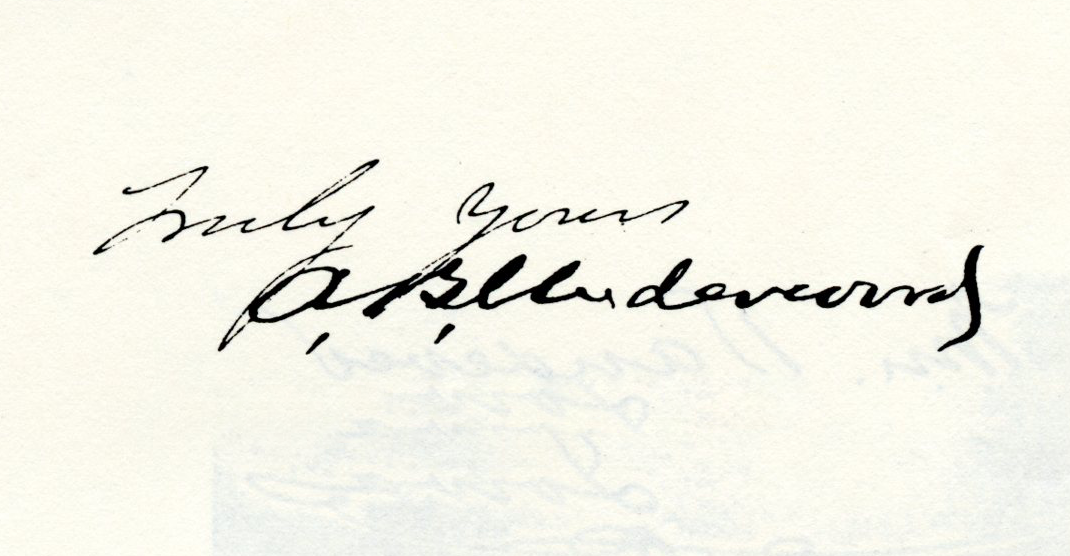 Truly yours
A. B. Underwood